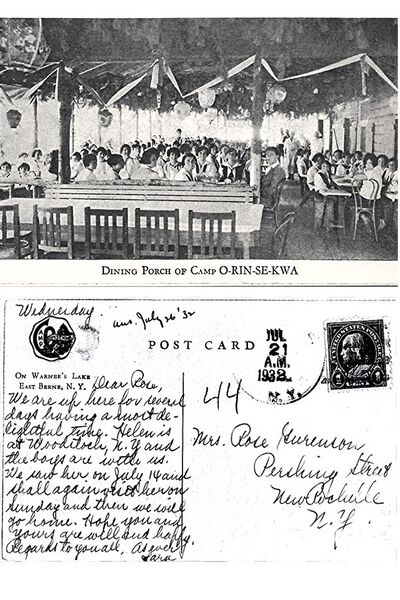 DINING PORCH OF CAMP O-RIN-SE-KWA
Wednesday.
ans. July 26 '32
POST CARD
JUL
21
A.M.
1932
N.Y.
UNITED STATES POSTAGE
1 CENT 1
ON WARNER'S LAKE
EAST BERNE, N. Y.
44
Dear Rose,
We are up here for several
days having a most de-
lightful time. Helen is
at Woodstock, N.Y and
the boys are with us.
We saw her on July 14 and
shall again visit her on
Sunday and then we will
go home. Hope you and
yours are well and happy.
Regards to you all, As ever
Sara
Mrs. Rose Gurenson
Pershing Street
New Rochelle
N.Y.